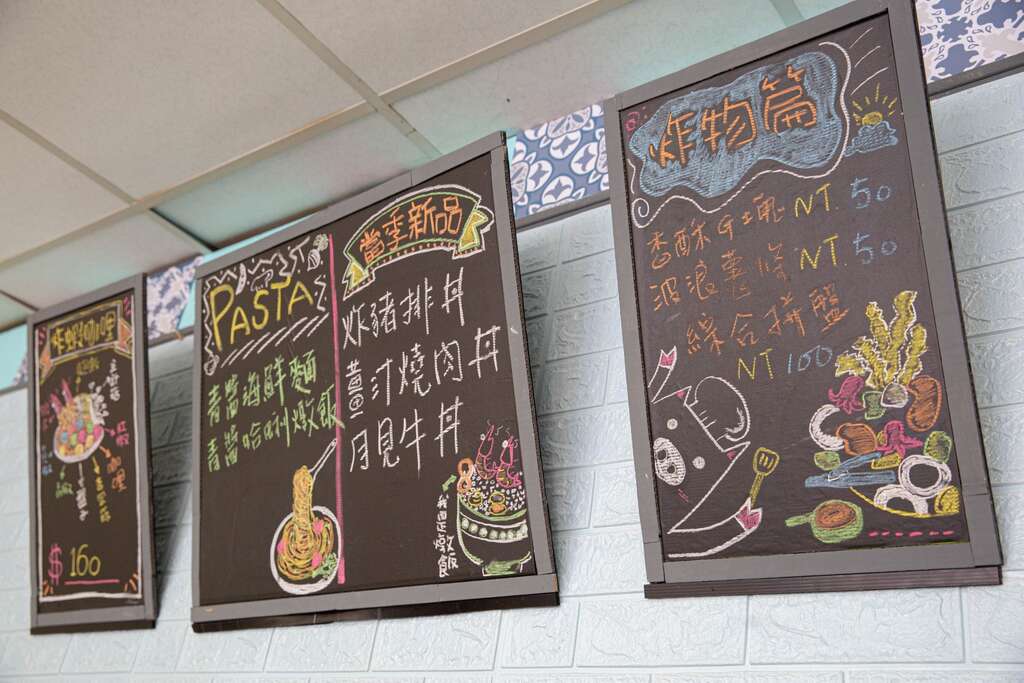 咖哩
紅蝦
咖哩
$ 160
PASTA
青醬海鮮麵
青醬蛤蜊燉飯
當季新品
炸豬排丼
薑汁燒肉丼
月見牛丼
我是燉飯
炸物篇
香酥 NT. 50
波浪薯條 NT. 50
綜合拼盤
NT 100